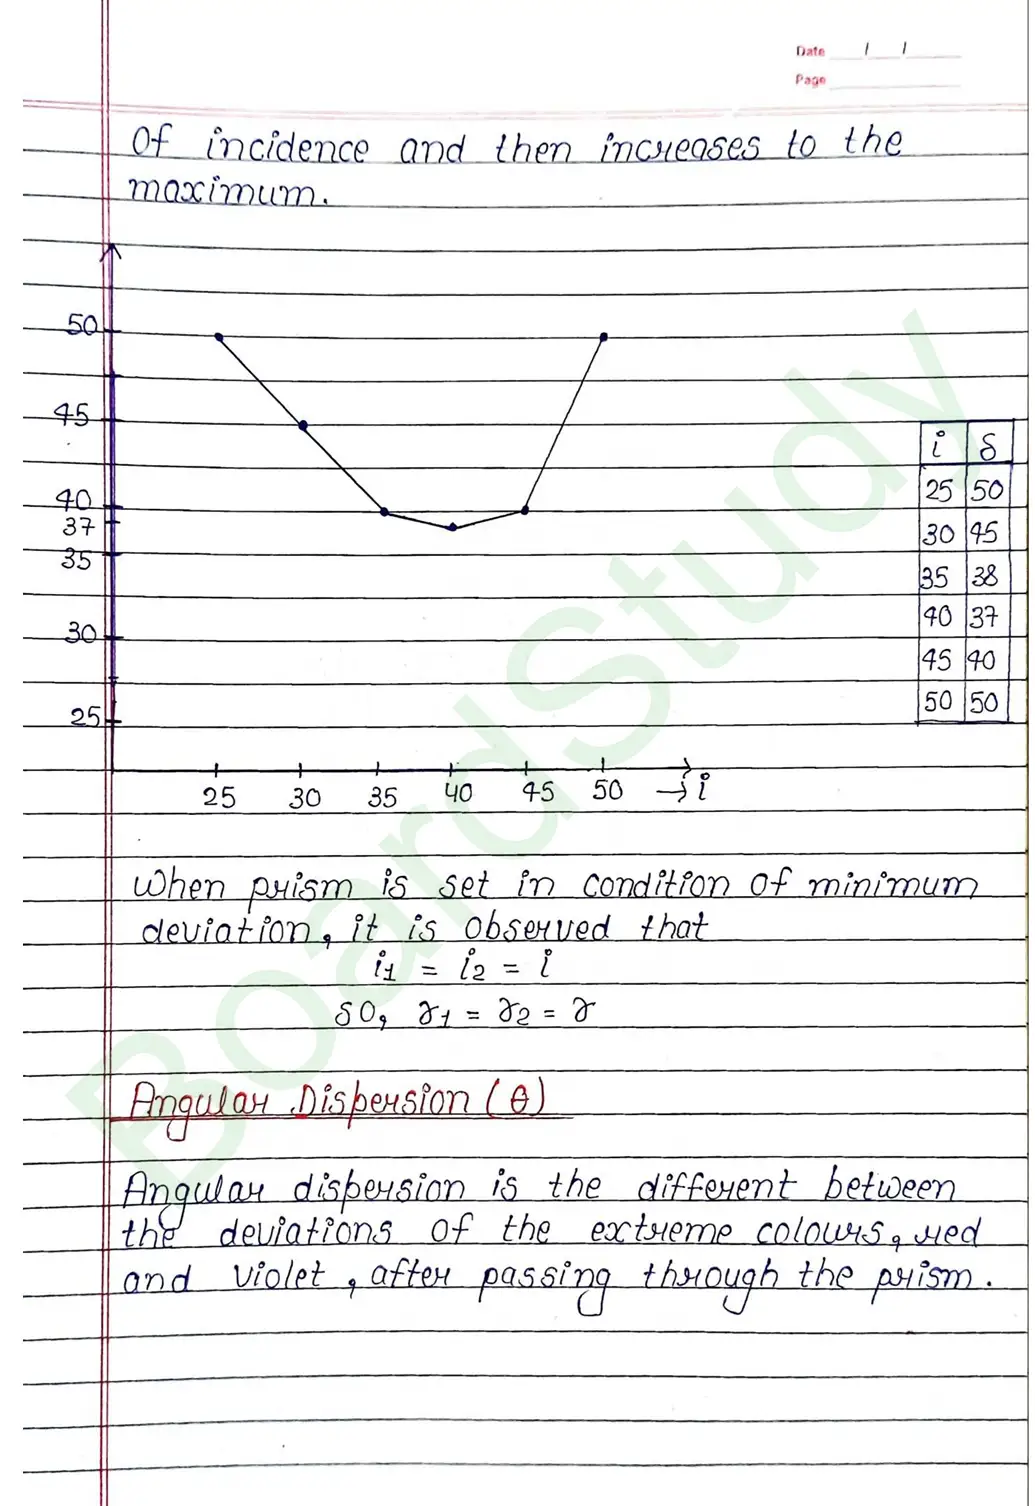 Date / /
Page
Of incidence and then increases to the
maximum.
50
45
40
37
35
30
25
25 30 35 40 45 50 → i
i δ
25 50
30 45
35 38
40 37
45 40
50 50
When prism is set in condition of minimum
deviation, it is observed that
i1 = i2 = i
SO, r1 = r2 = r
Angular Dispersion (θ)
Angular dispersion is the different between
the deviations of the extreme colours, red
and violet, after passing through the prism.
BoardStudy